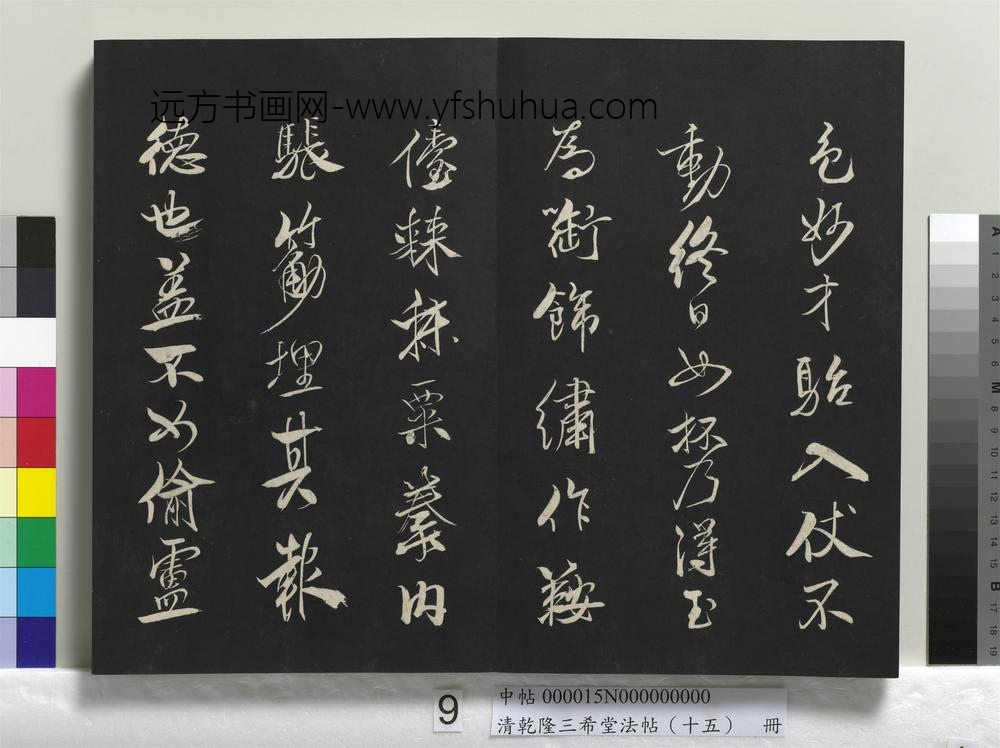 色妙才駘入仗不
動終日如杯乃得玉
為銜飾繡作鞍
儓棘秣粟豢肉
脹筋埋其報
德也蓋不如偷盧
远方书画网-www.yfshuhua.com
9
中帖 000015N000000000
清乾隆三希堂法帖（十五） 冊
A 1 2 3 4 5 6 M 8 9 10 11 12 13 14 15 B 17 18 19